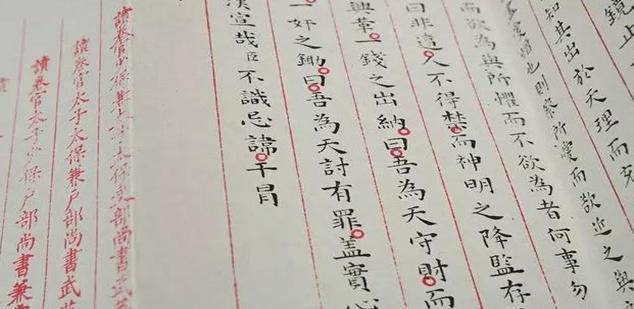 鏡止
知其出於天理而充
也則終所而欲近之與
而欲為與所懼而不欲為者何事勿
曰非遠人不得禁而神明之降監存
興革一錢之出納曰吾為天守財而
一奸之鋤曰吾為天討有罪蓋實
漢宣哉臣不識忌諱干冐
讀卷官少保兼太子太保部尚書
讀卷官太子太保兼戶部尚書武
讀卷官太子少保戶部尚書兼